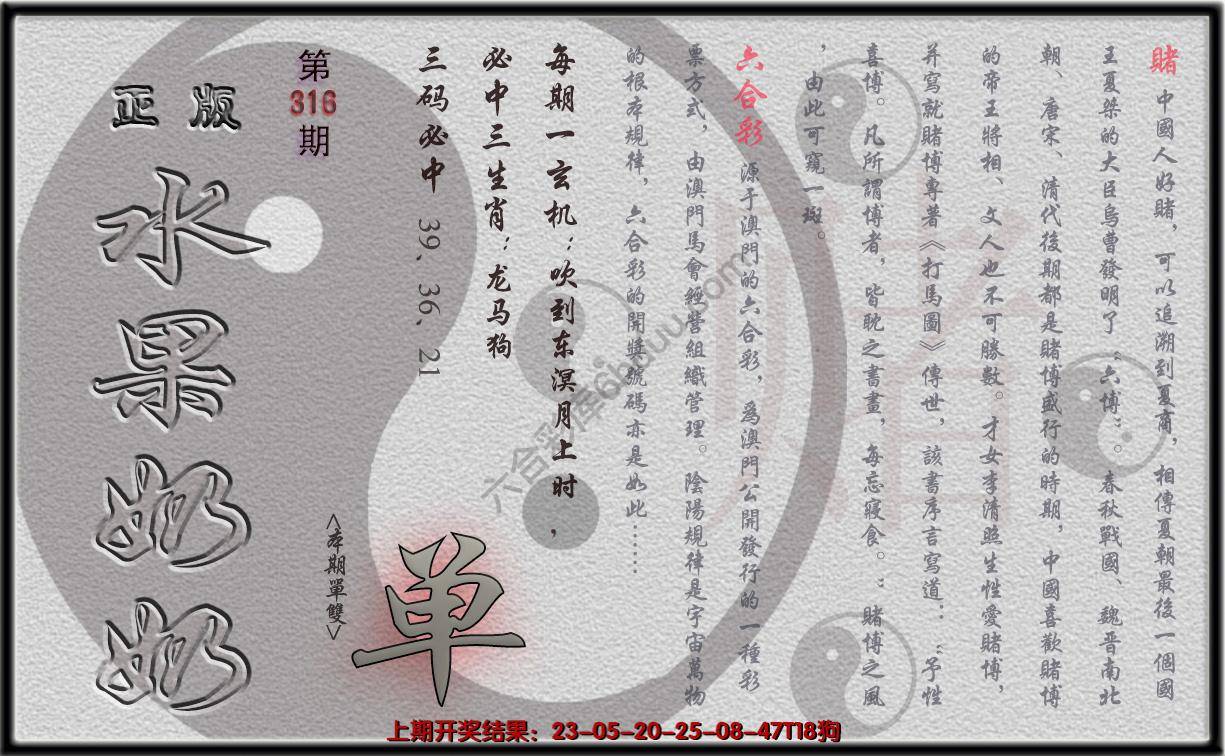 賭 中國人好賭，可以追溯到夏商，相傳夏朝最後一個國
王夏桀的大臣烏曹發明了“六博”。春秋戰國、魏晉南北
朝、唐宋、清代後期都是賭博盛行的時期，中國喜歡賭博
的帝王將相、文人也不可勝數。才女李清照生性愛賭博，
并寫就賭博專著《打馬圖》傳世，該書序言寫道：“予性
喜博。凡所謂博者，皆耽之書畫，每忘寢食。”賭博之風
，由此可窺一斑。
六合彩 源于澳門的六合彩，為澳門公開發行的一種彩
票方式，由澳門馬會經營組織管理。陰陽規律是宇宙萬物
的根本規律，六合彩的開獎號碼亦是如此……
每期一玄机：吹到东溟月上时，
必中三生肖：龙马狗
三码必中 39、36、21
第316期
<本期單雙>
单
正版
水果奶奶
上期开奖结果：23-05-20-25-08-47T18狗
六合彩库6huuu.com
賭